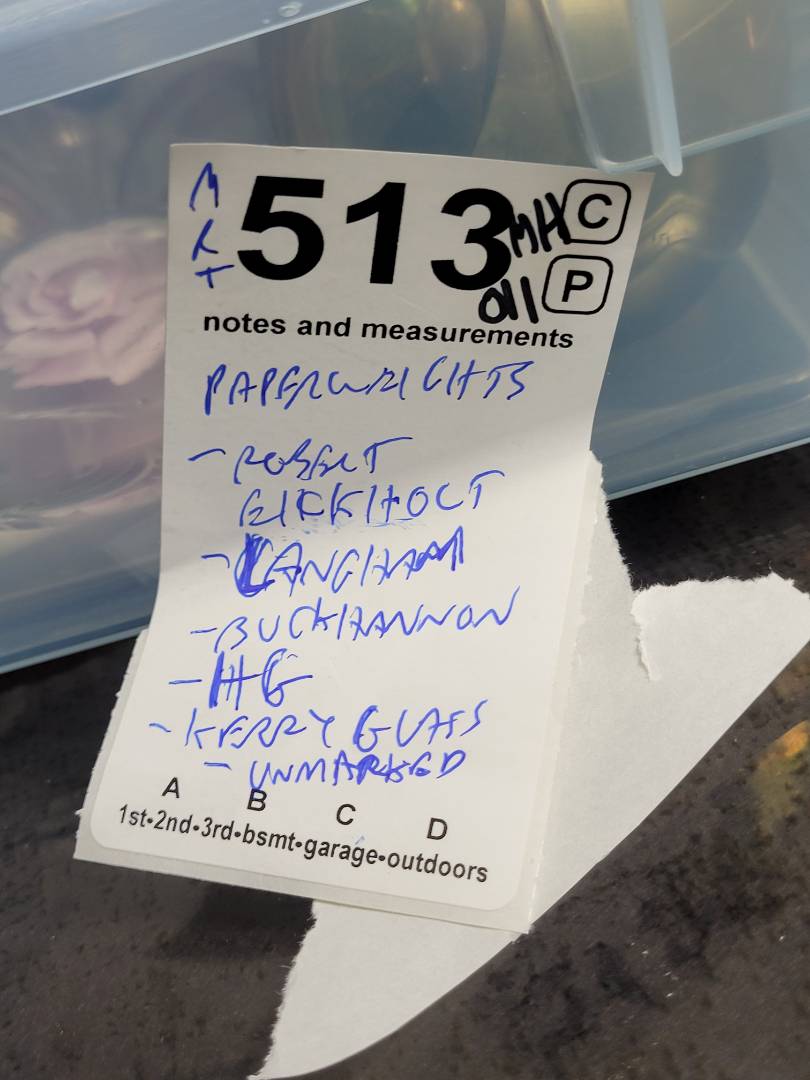 MRT 513 MH C
all P
notes and measurements
PAPERWEIGHTS
- ROBERT
EICKHOLT
- LANGHAM
- BUCKHANNON
- HG
- KERRY GLASS
- UNMARKED
A B C D
1st•2nd•3rd•bsmt•garage•outdoors